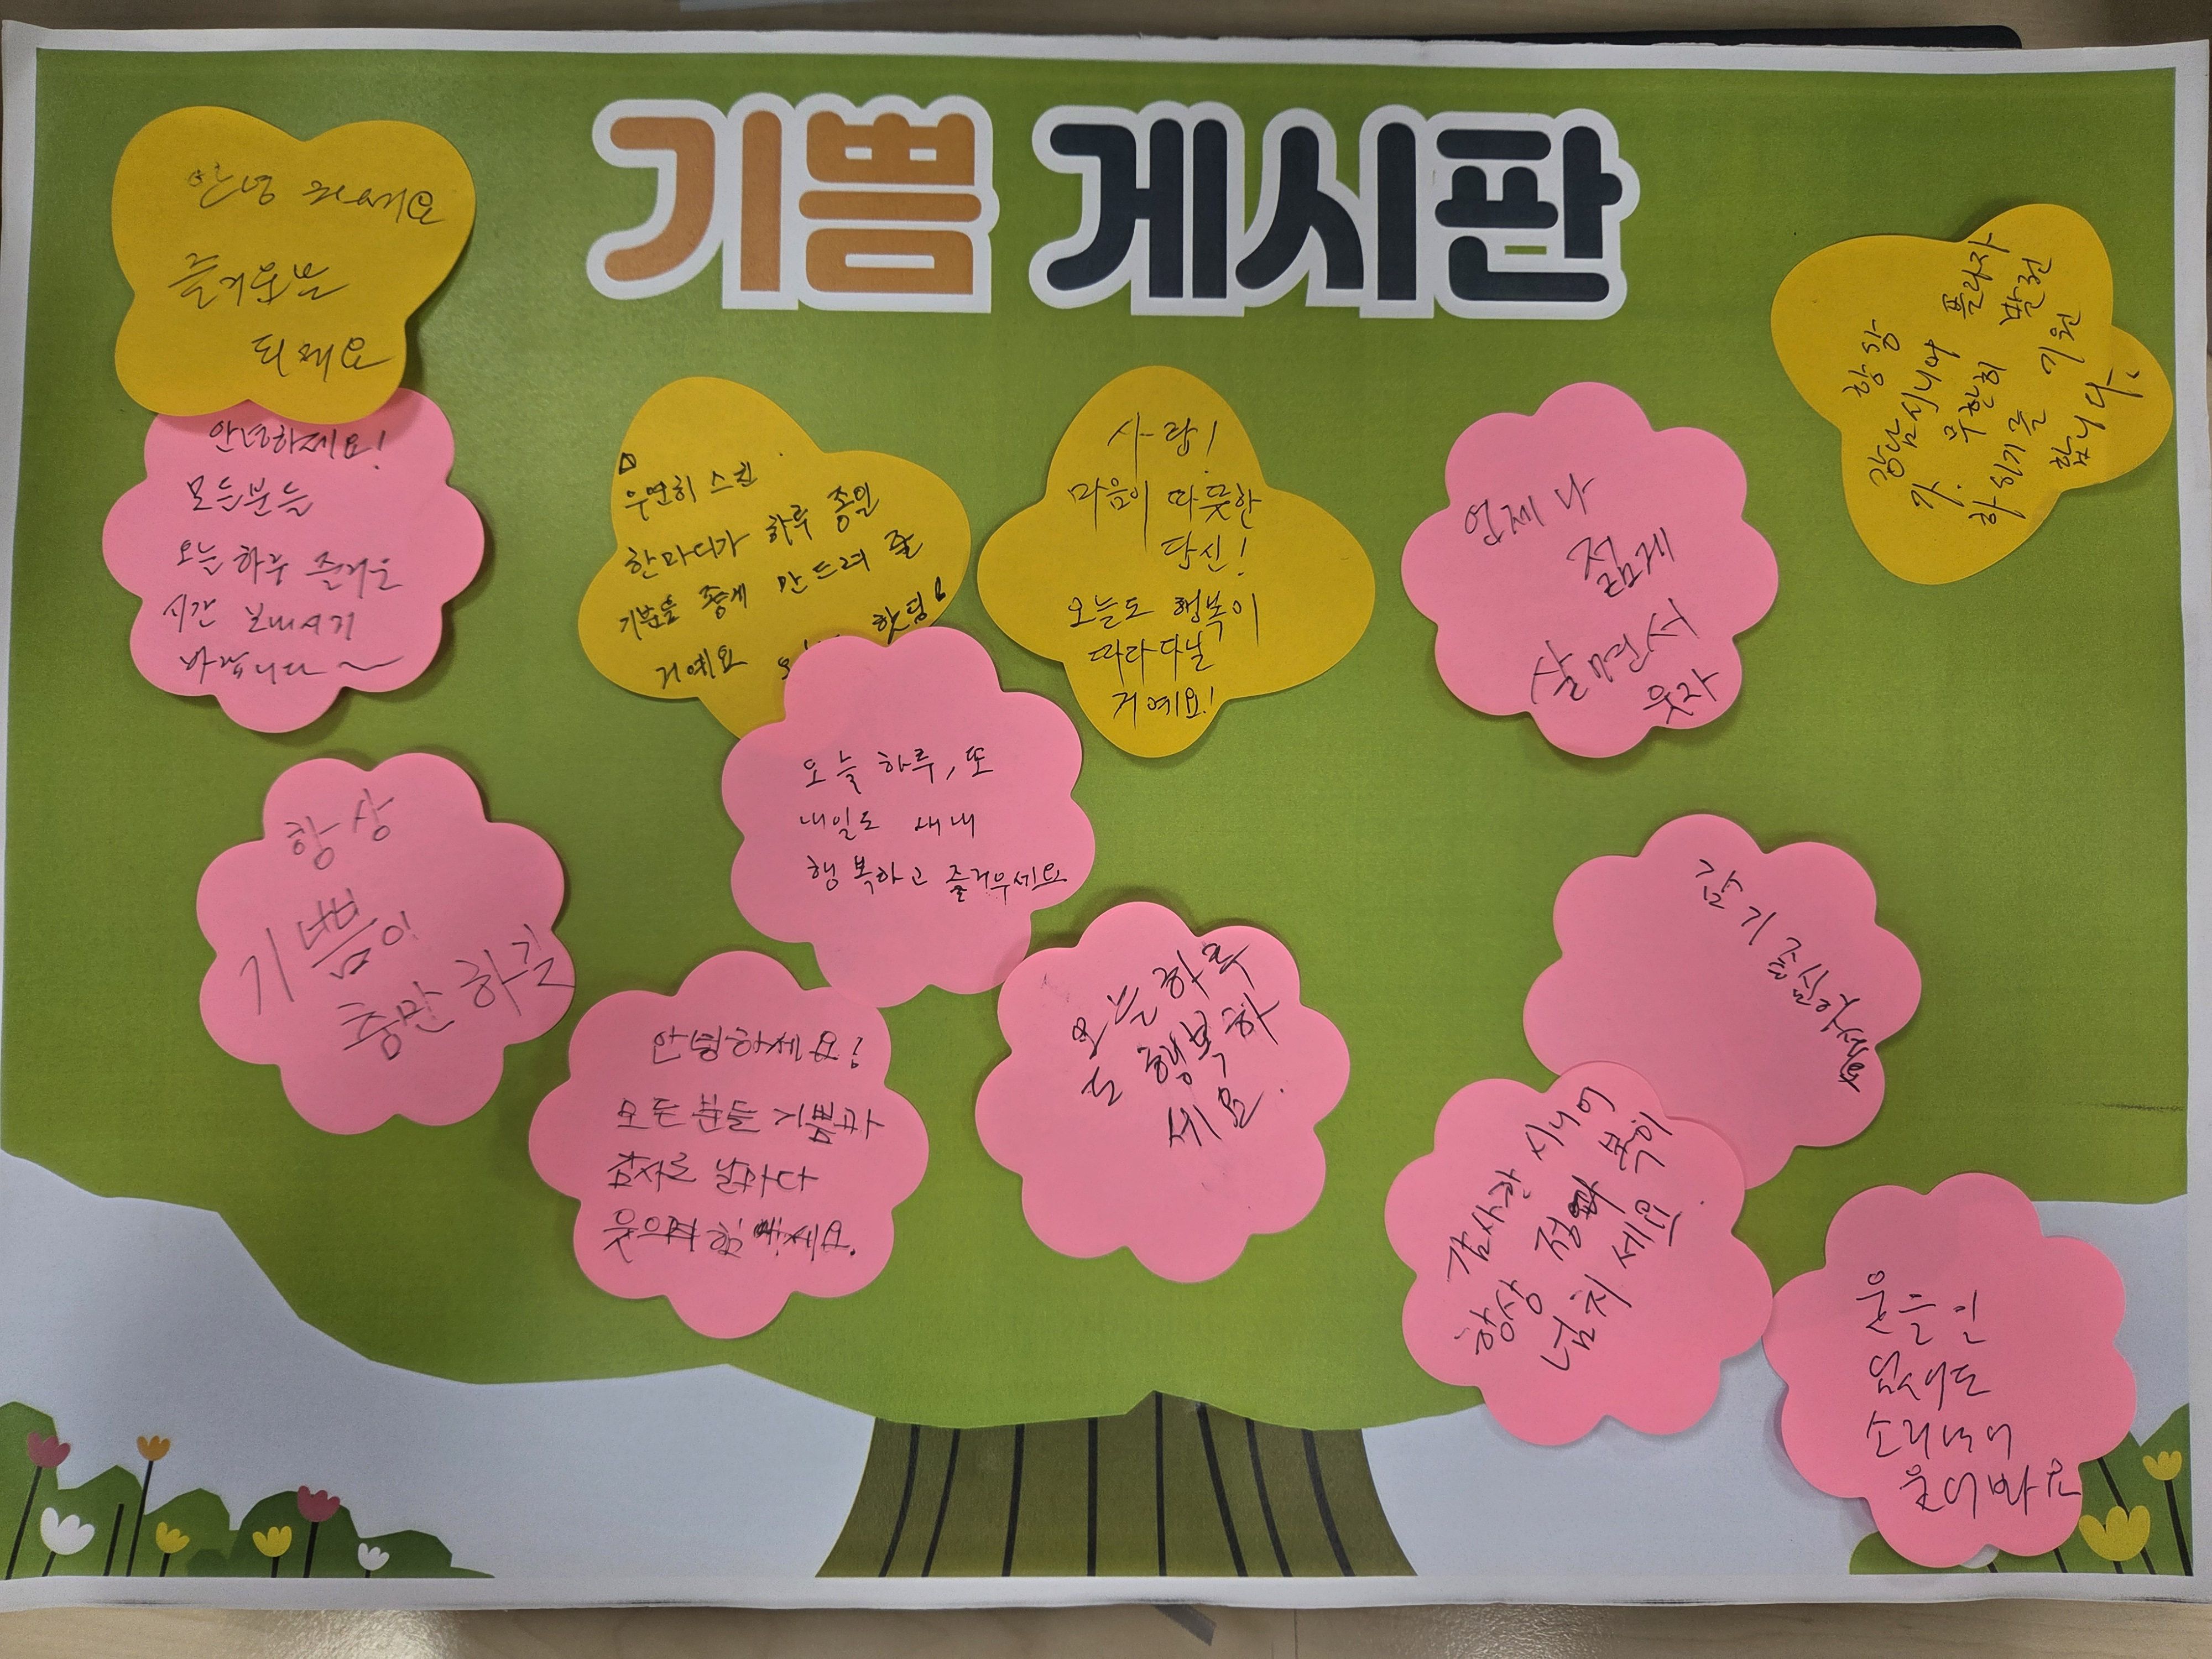 기쁨 게시판
안녕 하세요
즐거운날
되세요
안녕하세요!
모든분들
오늘 하루 즐거운
시간 보내시기
바랍니다~
우연히 스친
한마디가 하루 종일
기분을 좋게 만드려 줄
거예요
핫팅!
사랑!
마음이 따뜻한
당신!
오늘도 행복이
따라다닐
거예요!
언제나
젊게
살면서
웃자
항상
강남시니어 플라자
가. 무한히 발전
하시기를 기원
합니다.
항상
기쁨이
충만하길
오늘 하루, 또
내일도 새내
행복하고 즐거우세요
안녕하세요!
모든 분들 기쁨과
감사로 날마다
웃으며 힘 세요.
오늘하루
도 행복하
세요.
감기 조심하
감사한 시니어
항상 정과 복이
넘치세요.
웃을일
없어도
소리내어
웃어봐요